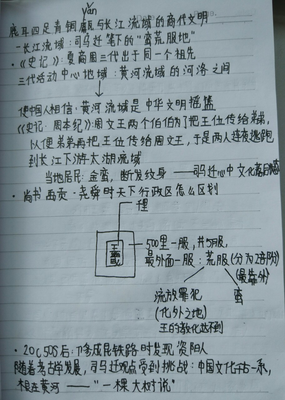 yǎn
鹿耳四足青铜甗与长江流域的商代文明
- 长江流域:司马迁笔下的“蛮荒服地”
·《史记》:夏商周三代出于同一个祖先
三代活动中心地域:黄河流域的河洛之间
使中国人相信:黄河流域是中华文明摇篮
《史记·周本纪》:周文王两个伯伯为了把王位传给弟弟,
以便弟弟再把王位传给周文王,于是两人连夜逃跑
到长江下游太湖流域
当地居民:金蛮,断发纹身——司马迁心中文化落后
·尚书·禹贡·尧舜时天下行政区怎么区划
500里一服,共5服,
最外面一服:荒服(分为2部分)
(最靠外)
流放罪犯
蛮
(化外之地)
王的教化达不到
·20C50S后:修成昆铁路时发现资阳人
随着考古学发展,司马迁观点受到挑战:中国文化元一承,
根在黄河——“一棵大树说”